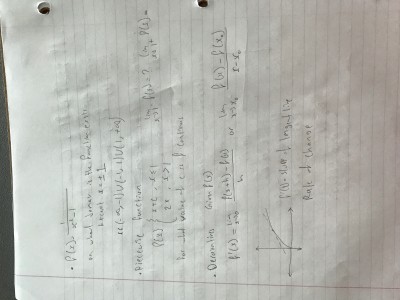 • f(x) = 1/(x²-1)
on what domain is the function
except x = ±1
(-∞,-1) ∪ (-1,1) ∪ (1,+∞)
• Piecewise function
f(x) { x+c, x≤1
2x, x>1
lim x→1⁻ f(x) = ? lim x→1⁺ f(x) =
For what value of c is f continous
• Derivatives Given f(x)
f'(x) = lim h→0 (f(x+h)-f(x))/h or lim x→x₀ (f(x)-f(x₀))/(x-x₀)
f'(x) = slope of tangent line
Rate of change